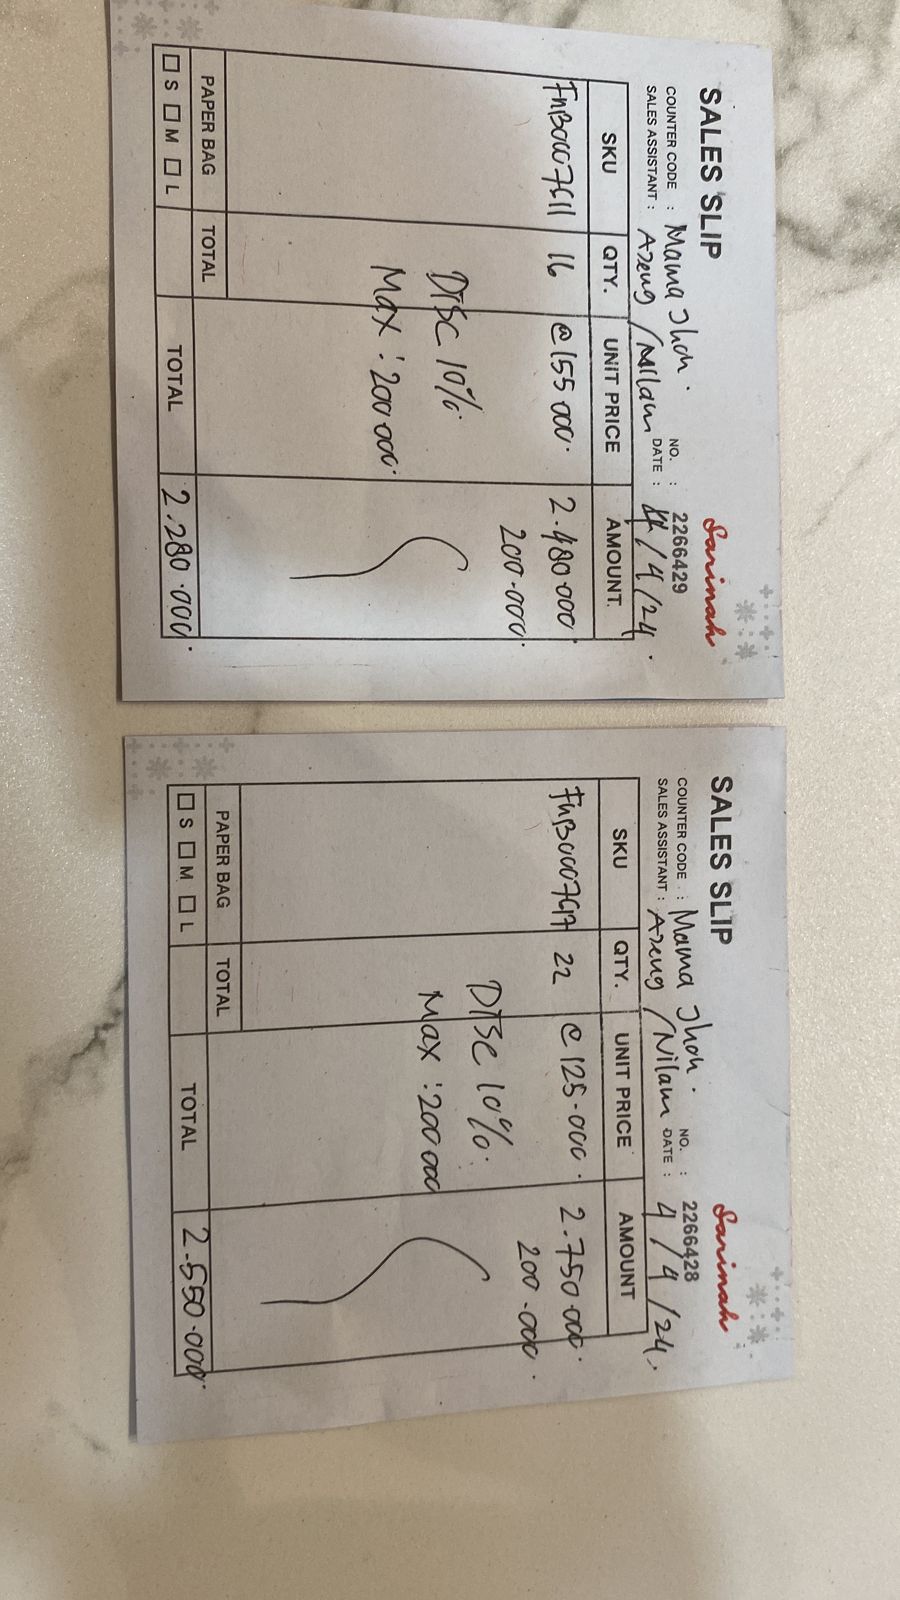 SALES SLIP
Sarinah
COUNTER CODE : Mama Jhoh.
NO. : 2266429
SALES ASSISTANT : Azeng / Nilam
DATE : 4/4/24.
SKU QTY. UNIT PRICE AMOUNT
FnB0007611 16 @155.000. 2.480.000.
200.000.
DISC 10%.
Max : 200.000.
PAPER BAG TOTAL
S M L TOTAL 2.280.000.
SALES SLIP
Sarinah
COUNTER CODE : Mama Jhoh.
NO. : 2266428
SALES ASSISTANT : Azeng / Nilam
DATE : 4/4/24.
SKU QTY. UNIT PRICE AMOUNT
FnB0007617 22 @125.000. 2.750.000.
200.000.
DISC 10%.
Max : 200.000
PAPER BAG TOTAL
S M L TOTAL 2.550.000.